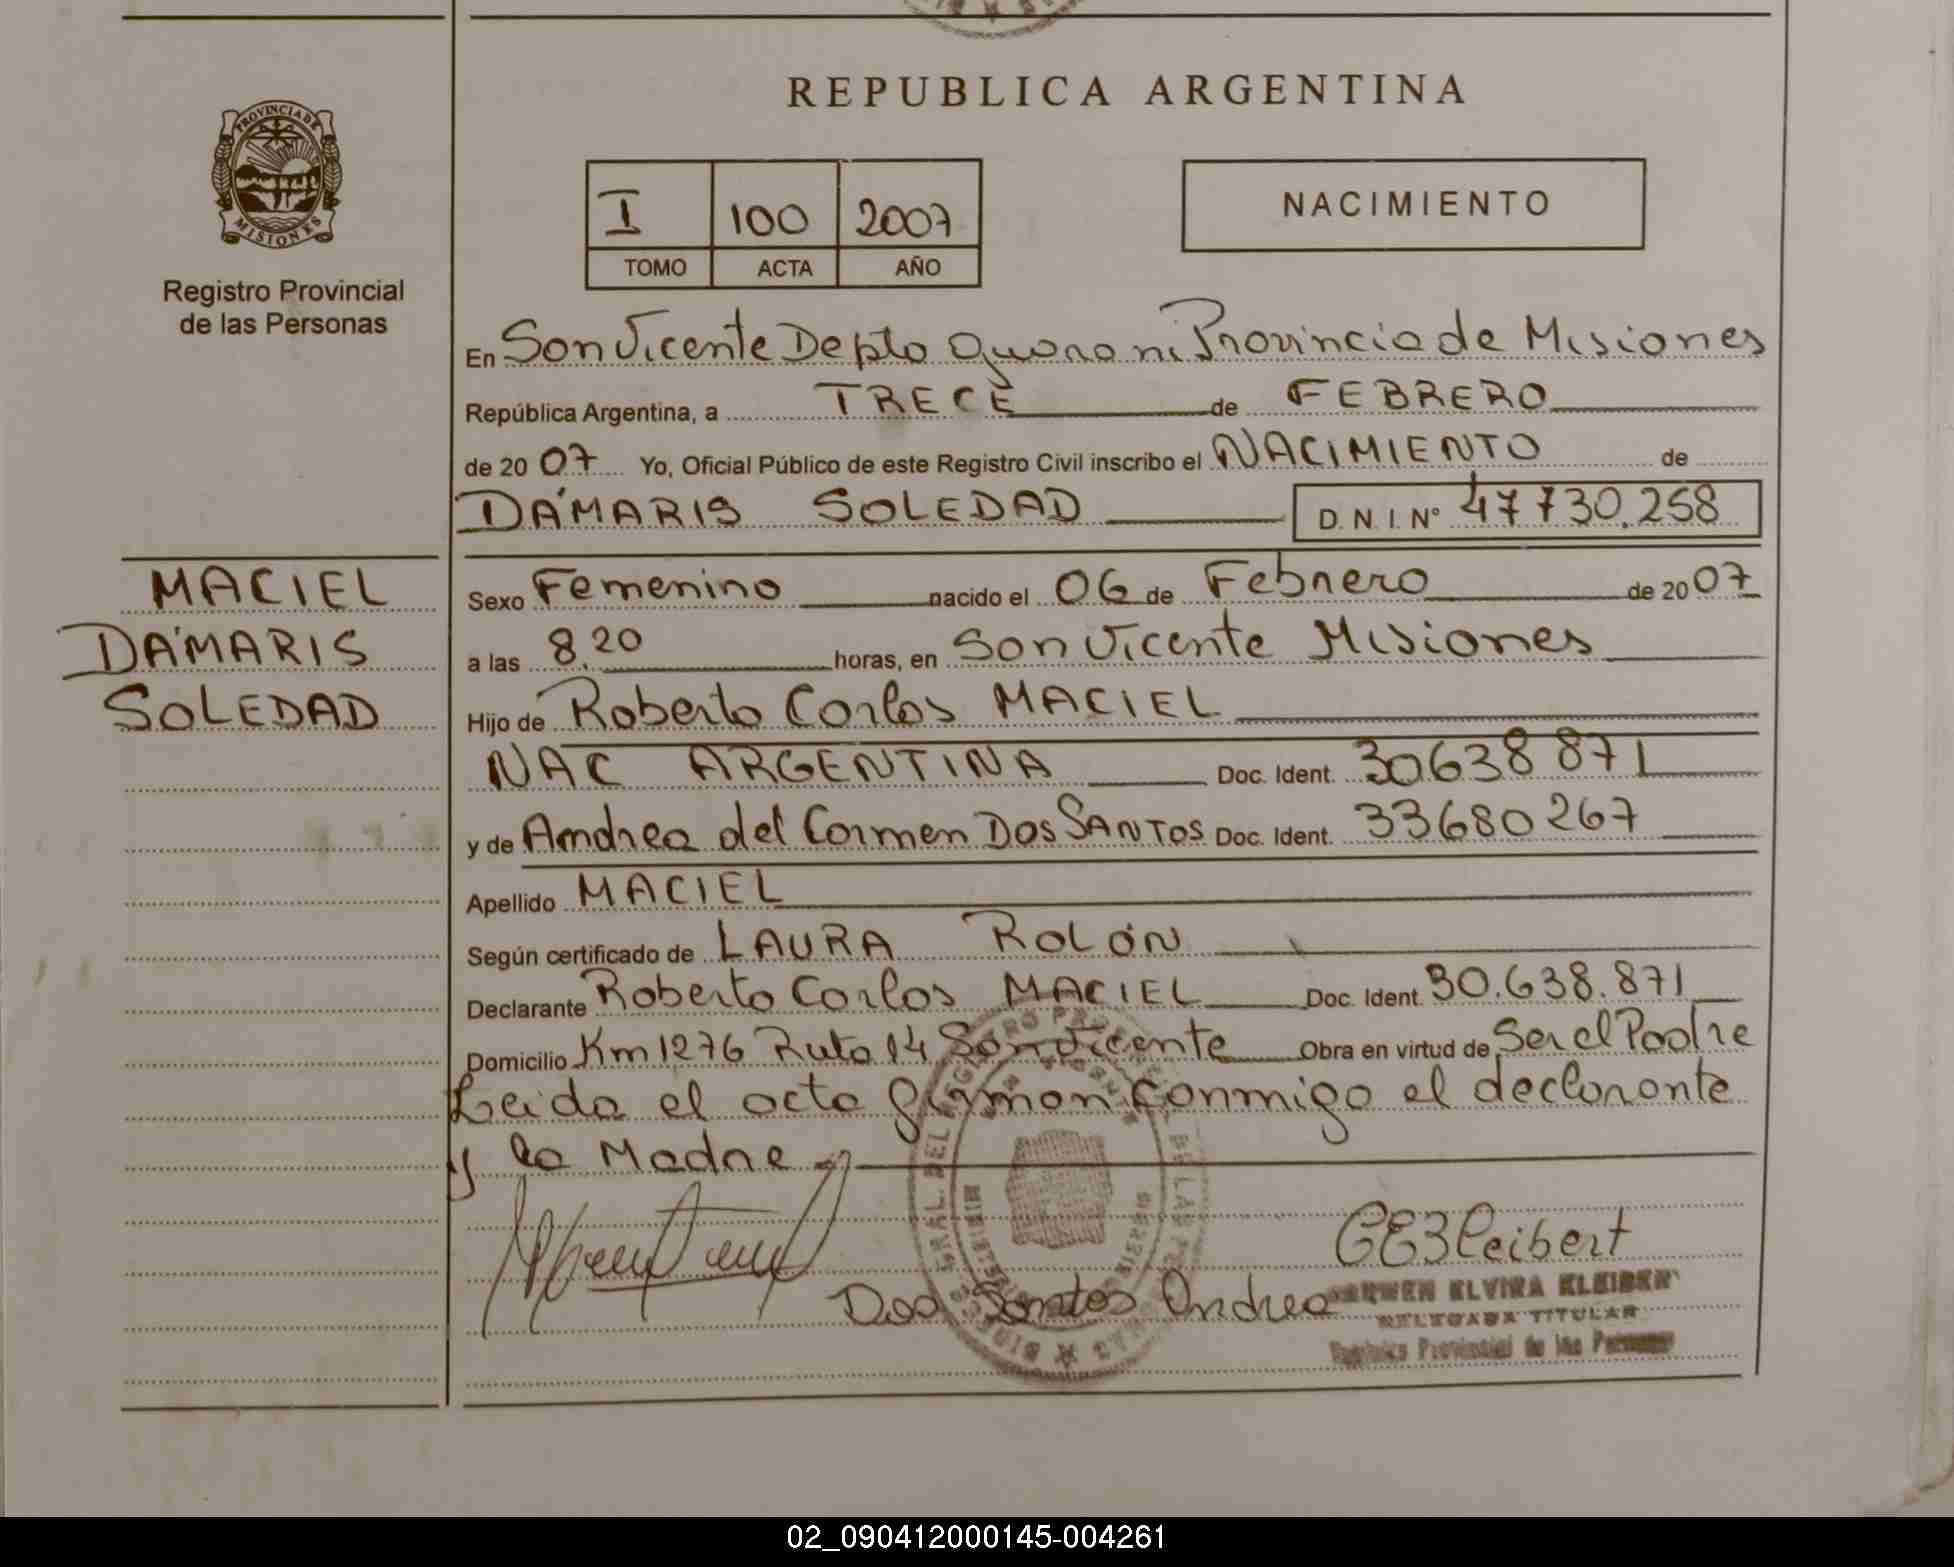 REPUBLICA ARGENTINA
PROVINCIA DE
MISIONES
Registro Provincial
de las Personas
I 100 2007
TOMO ACTA AÑO
NACIMIENTO
En San Vicente Depto Guarani Provincia de Misiones
República Argentina, a TRECE de FEBRERO
de 2007 Yo, Oficial Público de este Registro Civil inscribo el NACIMIENTO de
DÁMARIS SOLEDAD D.N.I. N° 47730.258
MACIEL
DÁMARIS
SOLEDAD
Sexo Femenino nacido el 06 de Febrero de 2007
a las 8,20 horas, en San Vicente Misiones
Hijo de Roberto Carlos MACIEL
NAC ARGENTINA Doc. Ident. 30638871
y de Andrea del Carmen Dos SANTOS Doc. Ident. 33680267
Apellido MACIEL
Según certificado de LAURA ROLÓN
Declarante Roberto Carlos MACIEL Doc. Ident. 30.638.871
Domicilio Km 1276 Ruta 14 San Vicente Obra en virtud de Ser el Padre
Leida el acta firman conmigo el declarante
y la Madre
Dos Santos Andrea
CARMEN ELVIRA
DELEGADA TITULAR
Registro Provincial de las Personas
02_090412000145-004261